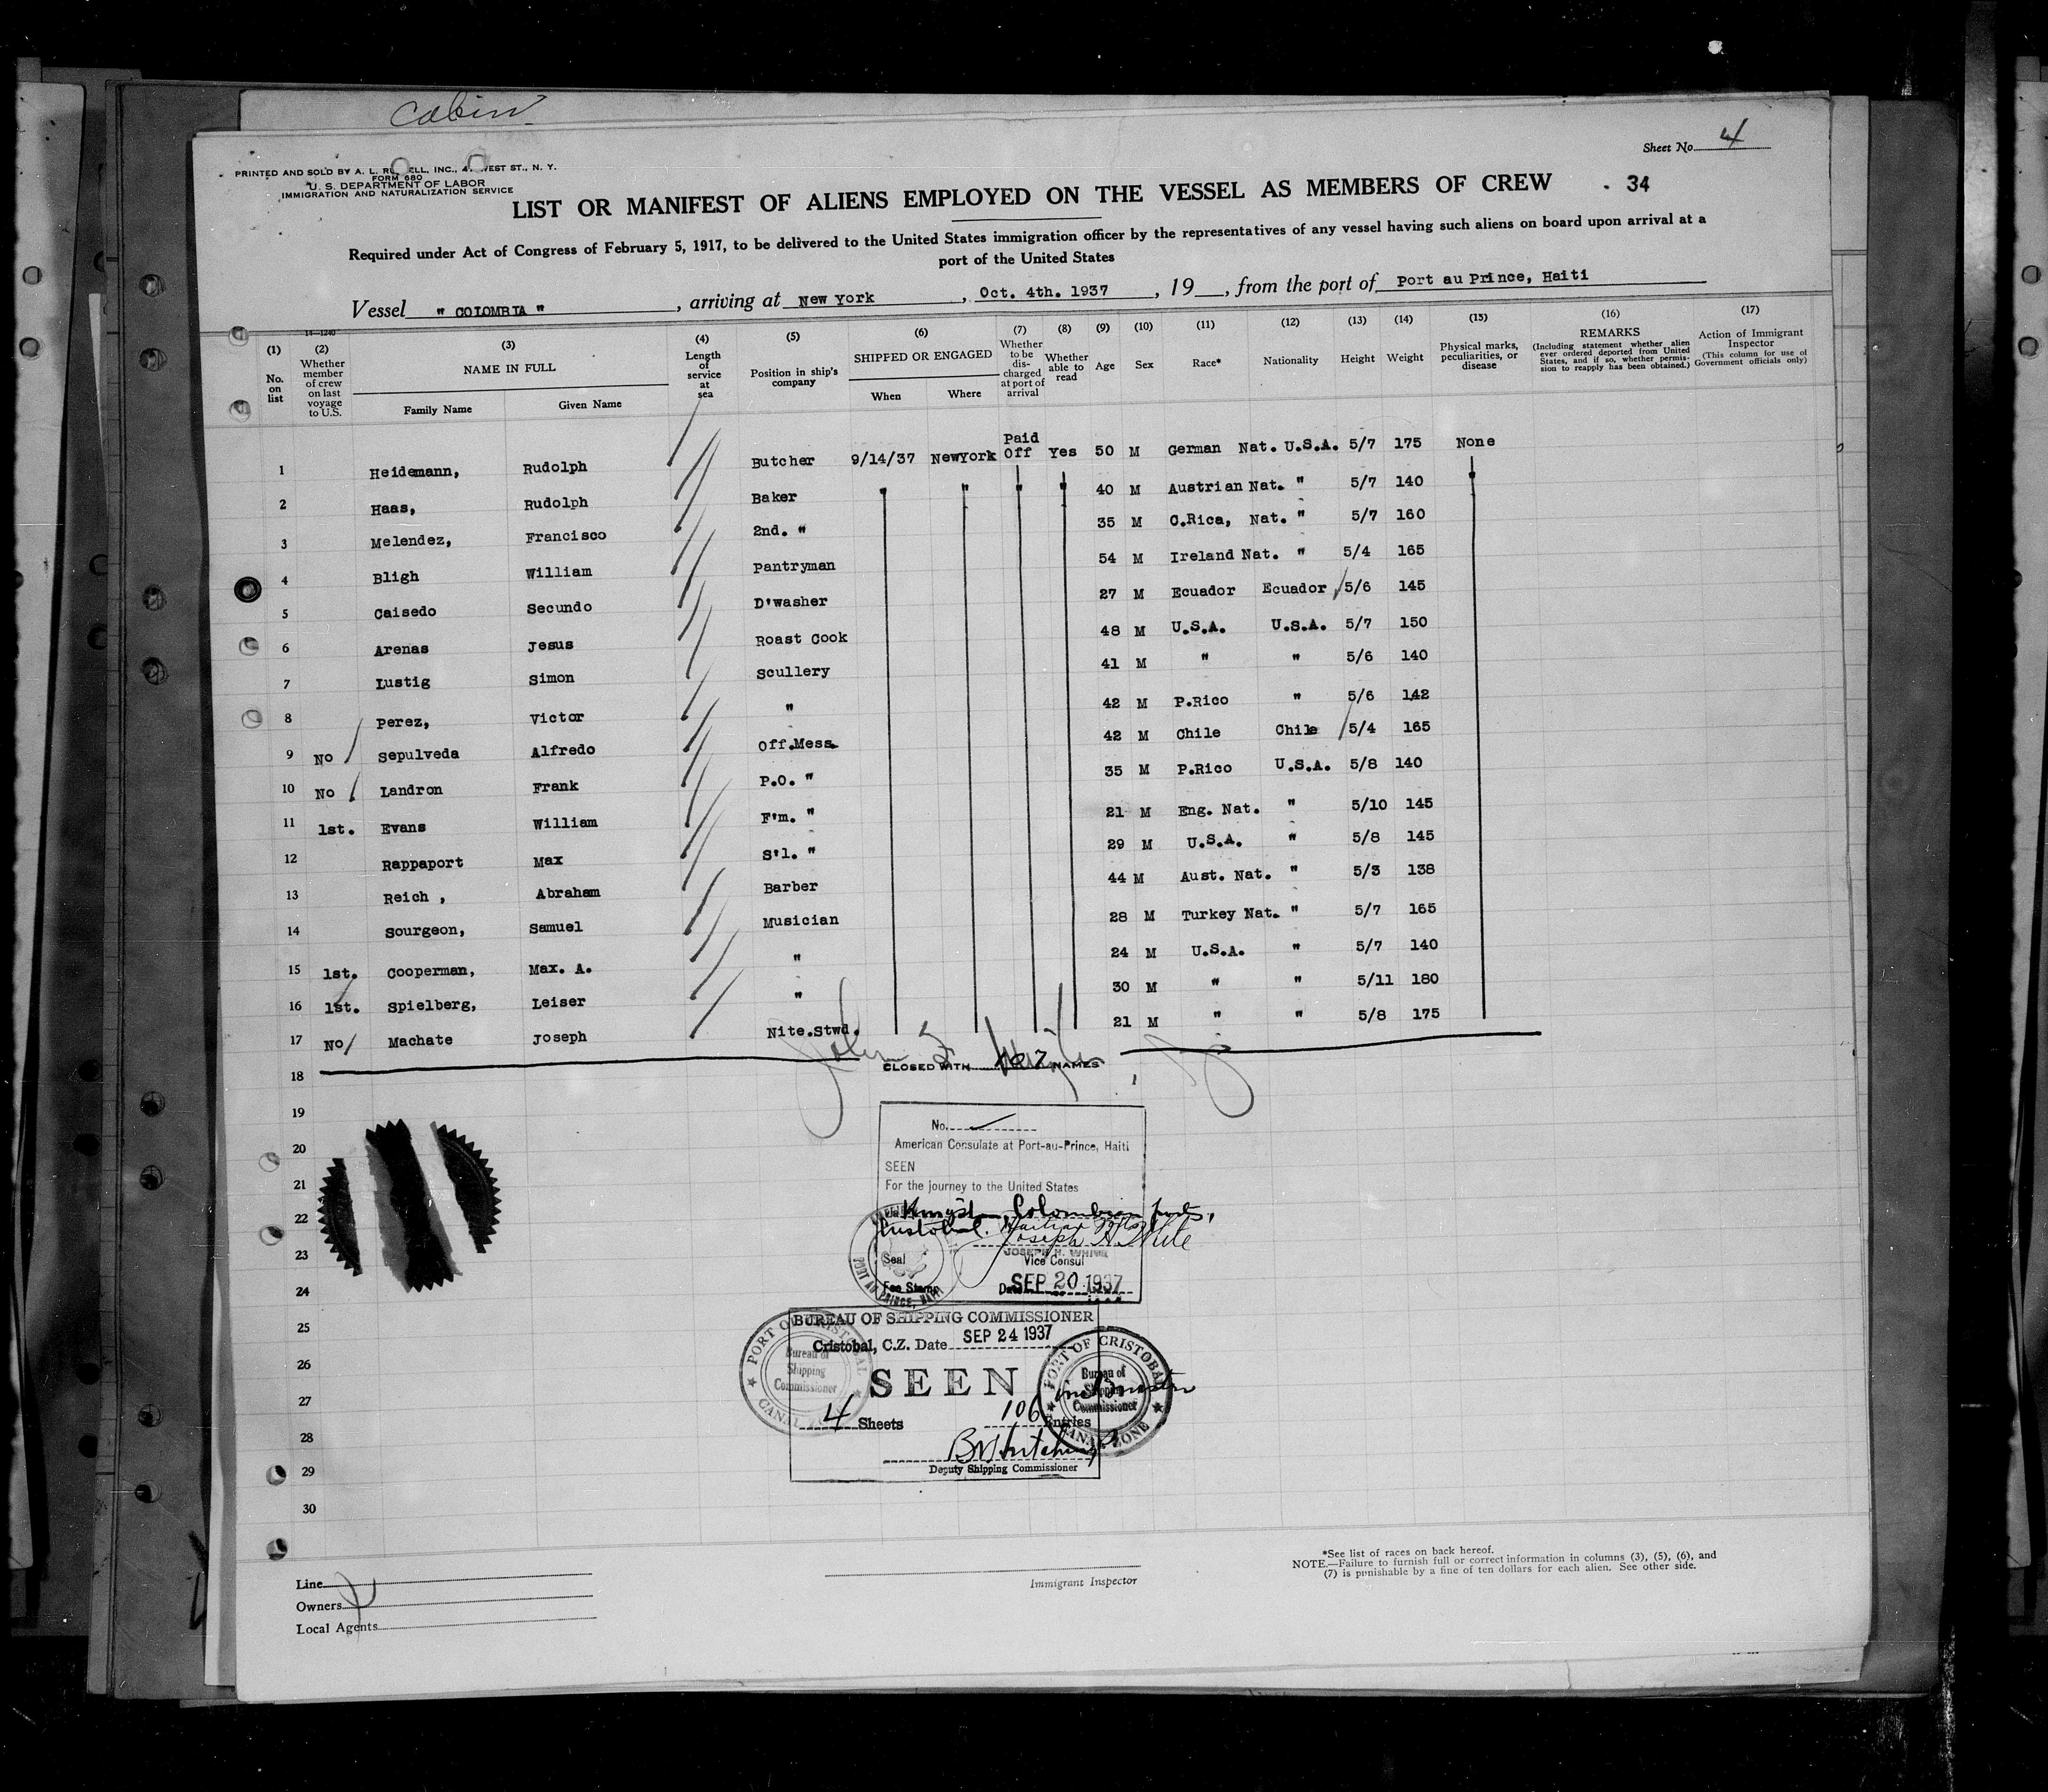 Cabin
Sheet No. 4
PRINTED AND SOLD BY A. L. INC., WEST ST., N. Y.
FORM 680
U. S. DEPARTMENT OF LABOR
IMMIGRATION AND NATURALIZATION SERVICE
LIST OR MANIFEST OF ALIENS EMPLOYED ON THE VESSEL AS MEMBERS OF CREW - 34
Required under Act of Congress of February 5, 1917, to be delivered to the United States immigration officer by the representatives of any vessel having such aliens on board upon arrival at a
port of the United States
Vessel " COLOMBIA " , arriving at New York , Oct. 4th. 1937 , 19 , from the port of Port au Prince, Haiti
14—1240
(1) (2) (3) (4) (5) (6) (7) (8) (9) (10) (11) (12) (13) (14) (15) (16) (17)
No. on list
Whether member of crew on last voyage to U.S.
NAME IN FULL
Family Name Given Name
Length of service at sea
Position in ship's company
SHIPPED OR ENGAGED
When Where
Whether to be discharged at port of arrival
Whether able to read
Age Sex Race* Nationality Height Weight
Physical marks, peculiarities, or disease
REMARKS
(Including statement whether alien ever ordered deported from United States, and if so, whether permission to reapply has been obtained.)
Action of Immigrant Inspector
(This column for use of Government officials only)
1 Heidemann, Rudolph Butcher 9/14/37 NewYork Paid Off Yes 50 M German Nat. U.S.A. 5/7 175 None
2 Haas, Rudolph Baker " " " " 40 M Austrian Nat. " 5/7 140 "
3 Melendez, Francisco 2nd. " 35 M C.Rica, Nat. " 5/7 160
4 Bligh William Pantryman 54 M Ireland Nat. " 5/4 165
5 Caisedo Secundo D'washer 27 M Ecuador Ecuador 5/6 145
6 Arenas Jesus Roast Cook 48 M U.S.A. U.S.A. 5/7 150
7 Lustig Simon Scullery 41 M " " 5/6 140
8 Perez, Victor " 42 M P.Rico " 5/6 142
9 No Sepulveda Alfredo Off.Mess. 42 M Chile Chile 5/4 165
10 No Landron Frank P.O. " 35 M P.Rico U.S.A. 5/8 140
11 1st. Evans William F'm. " 21 M Eng. Nat. " 5/10 145
12 Rappaport Max S'l. " 29 M U.S.A. " 5/8 145
13 Reich , Abraham Barber 44 M Aust. Nat. " 5/3 138
14 Sourgeon, Samuel Musician 28 M Turkey Nat. " 5/7 165
15 1st. Cooperman, Max. A. " 24 M U.S.A. " 5/7 140
16 1st. Spielberg, Leiser " 30 M " " 5/11 180
17 No Machate Joseph Nite.Stwd. 21 M " " 5/8 175
18
CLOSED WITH 107 NAMES
19
20
21
22
23
24
25
26
27
28
29
30
No.
American Consulate at Port-au-Prince, Haiti
SEEN
For the journey to the United States
Colombian ports,
Cristobal.
Joseph H. White
JOSEPH H. WHITE
Vice Consul
Seal
Fee Stamp
Date SEP 20 1937
PORT AU PRINCE, HAITI
BUREAU OF SHIPPING COMMISSIONER
Cristobal, C.Z. Date SEP 24 1937
SEEN
4 Sheets 106 Entries
Deputy Shipping Commissioner
PORT OF CRISTOBAL
Bureau of
Shipping
Commissioner
CANAL ZONE
PORT OF CRISTOBAL
Bureau of
Shipping
Commissioner
CANAL ZONE
Line
Owners
Local Agents
Immigrant Inspector
*See list of races on back hereof.
NOTE.—Failure to furnish full or correct information in columns (3), (5), (6), and
(7) is punishable by a fine of ten dollars for each alien. See other side.